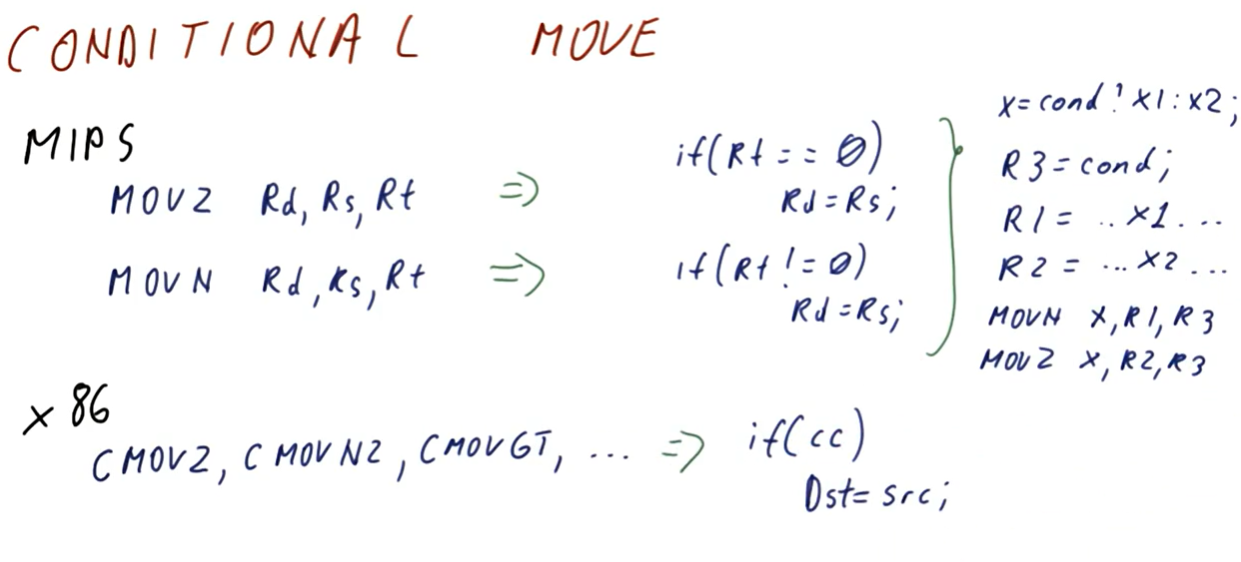 CONDITIONAL MOVE
MIPS
MOVZ Rd, Rs, Rt => if(Rt == 0)
Rd = Rs;
MOVN Rd, Rs, Rt => if(Rt != 0)
Rd = Rs;
x = cond ? x1 : x2;
R3 = cond;
R1 = .. x1 . ..
R2 = ... x2 ...
MOVN x, R1, R3
MOVZ x, R2, R3
x86
CMOVZ, CMOVNZ, CMOVGT, ... => if(cc)
Dst = src;